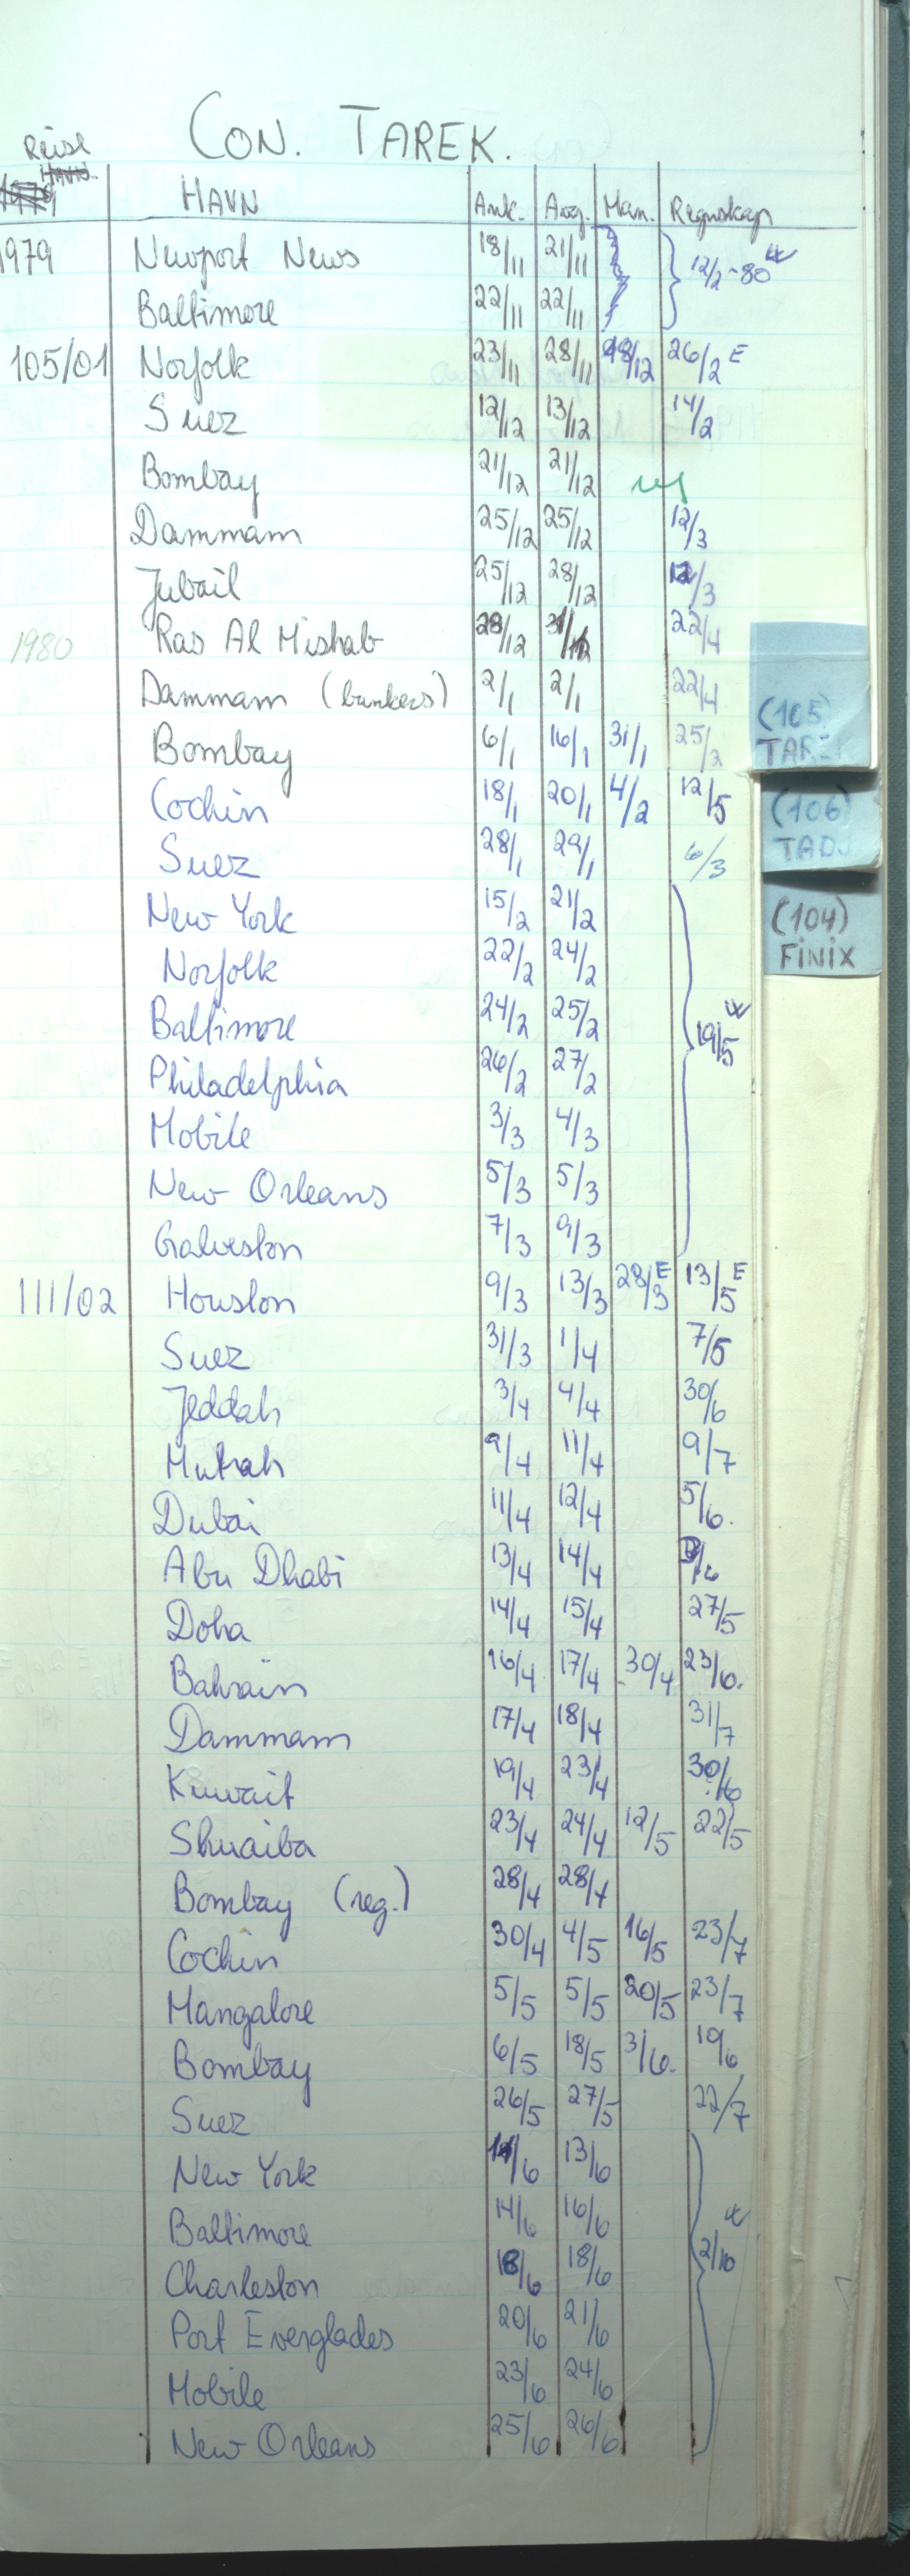 CON. TAREK.
Reise
HAVN Ank. Avg. Man. Regnskap
1979 Newport News 18/11 21/11 12/2-80
Baltimore 22/11 22/11
105/01 Norfolk 23/11 28/11 28/12 26/2 E
Suez 12/12 13/12 14/2
Bombay 21/12 21/12
Dammam 25/12 25/12 12/3
Jubail 25/12 28/12 12/3
1980 Ras Al Mishab 28/12 31/12 22/4
Dammam (bunkers) 2/1 2/1 22/4
Bombay 6/1 16/1 31/1 25/2
Cochin 18/1 20/1 4/2 12/5
Suez 28/1 29/1 6/3
New York 15/2 21/2
Norfolk 22/2 24/2
Baltimore 24/2 25/2 19/5
Philadelphia 26/2 27/2
Mobile 3/3 4/3
New Orleans 5/3 5/3
Galveston 7/3 9/3
111/02 Houston 9/3 13/3 28/3 E 13/5 E
Suez 31/3 1/4 7/5
Jeddah 3/4 4/4 30/6
Mutrah 9/4 11/4 9/7
Dubai 11/4 12/4 5/6.
Abu Dhabi 13/4 14/4
Doha 14/4 15/4 27/5
Bahrain 16/4 17/4 30/4 23/6.
Dammam 17/4 18/4 31/7
Kuwait 19/4 23/4 30/6
Shuaiba 23/4 24/4 12/5 22/5
Bombay (reg.) 28/4 28/4
Cochin 30/4 4/5 16/5 23/7
Mangalore 5/5 5/5 20/5 23/7
Bombay 6/5 18/5 3/6. 19/6
Suez 26/5 27/5 22/7
New York 13/6
Baltimore 14/6 16/6
Charleston 18/6 18/6 2/10
Port Everglades 20/6 21/6
Mobile 23/6 24/6
New Orleans 25/6 26/6
(105)
TAREK
(106)
TADJ
(104)
FINIX